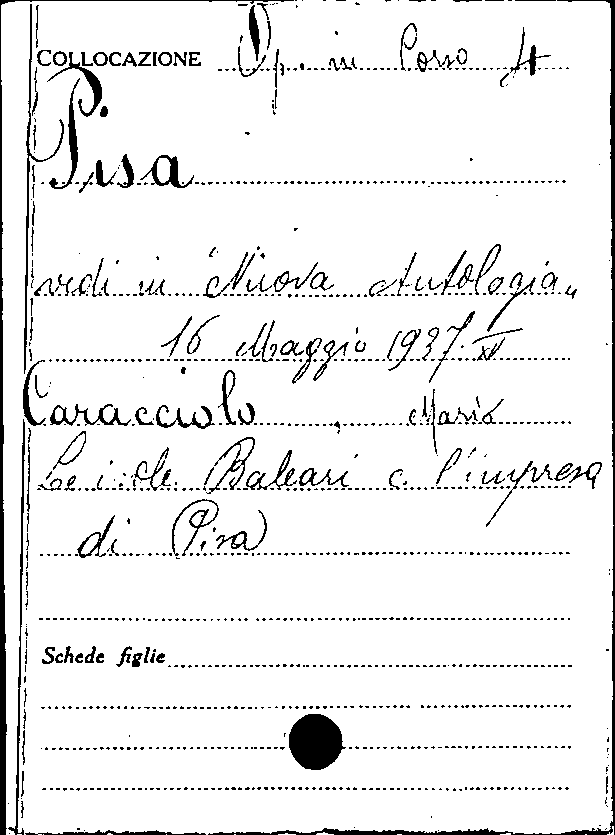 COLLOCAZIONE Op. in Corso 4
Pisa
vedi in "Nuova Antologia„
16 Maggio 1937. XV
Caracciolo, Mario
Le isole Baleari e l'impresa
di Pisa
Schede figlie